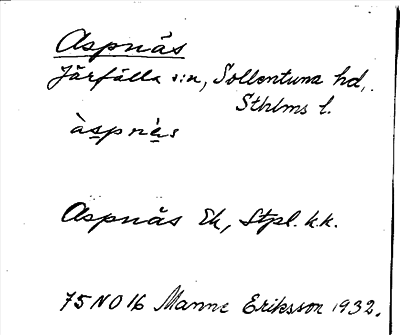 Aspnäs
Järfälla s:n, Sollentuna hd,
Sthlms l.
àspnä̀s
Aspnäs Ek, Stpl. k.k.
75 NO 16 Manne Eriksson 1932.